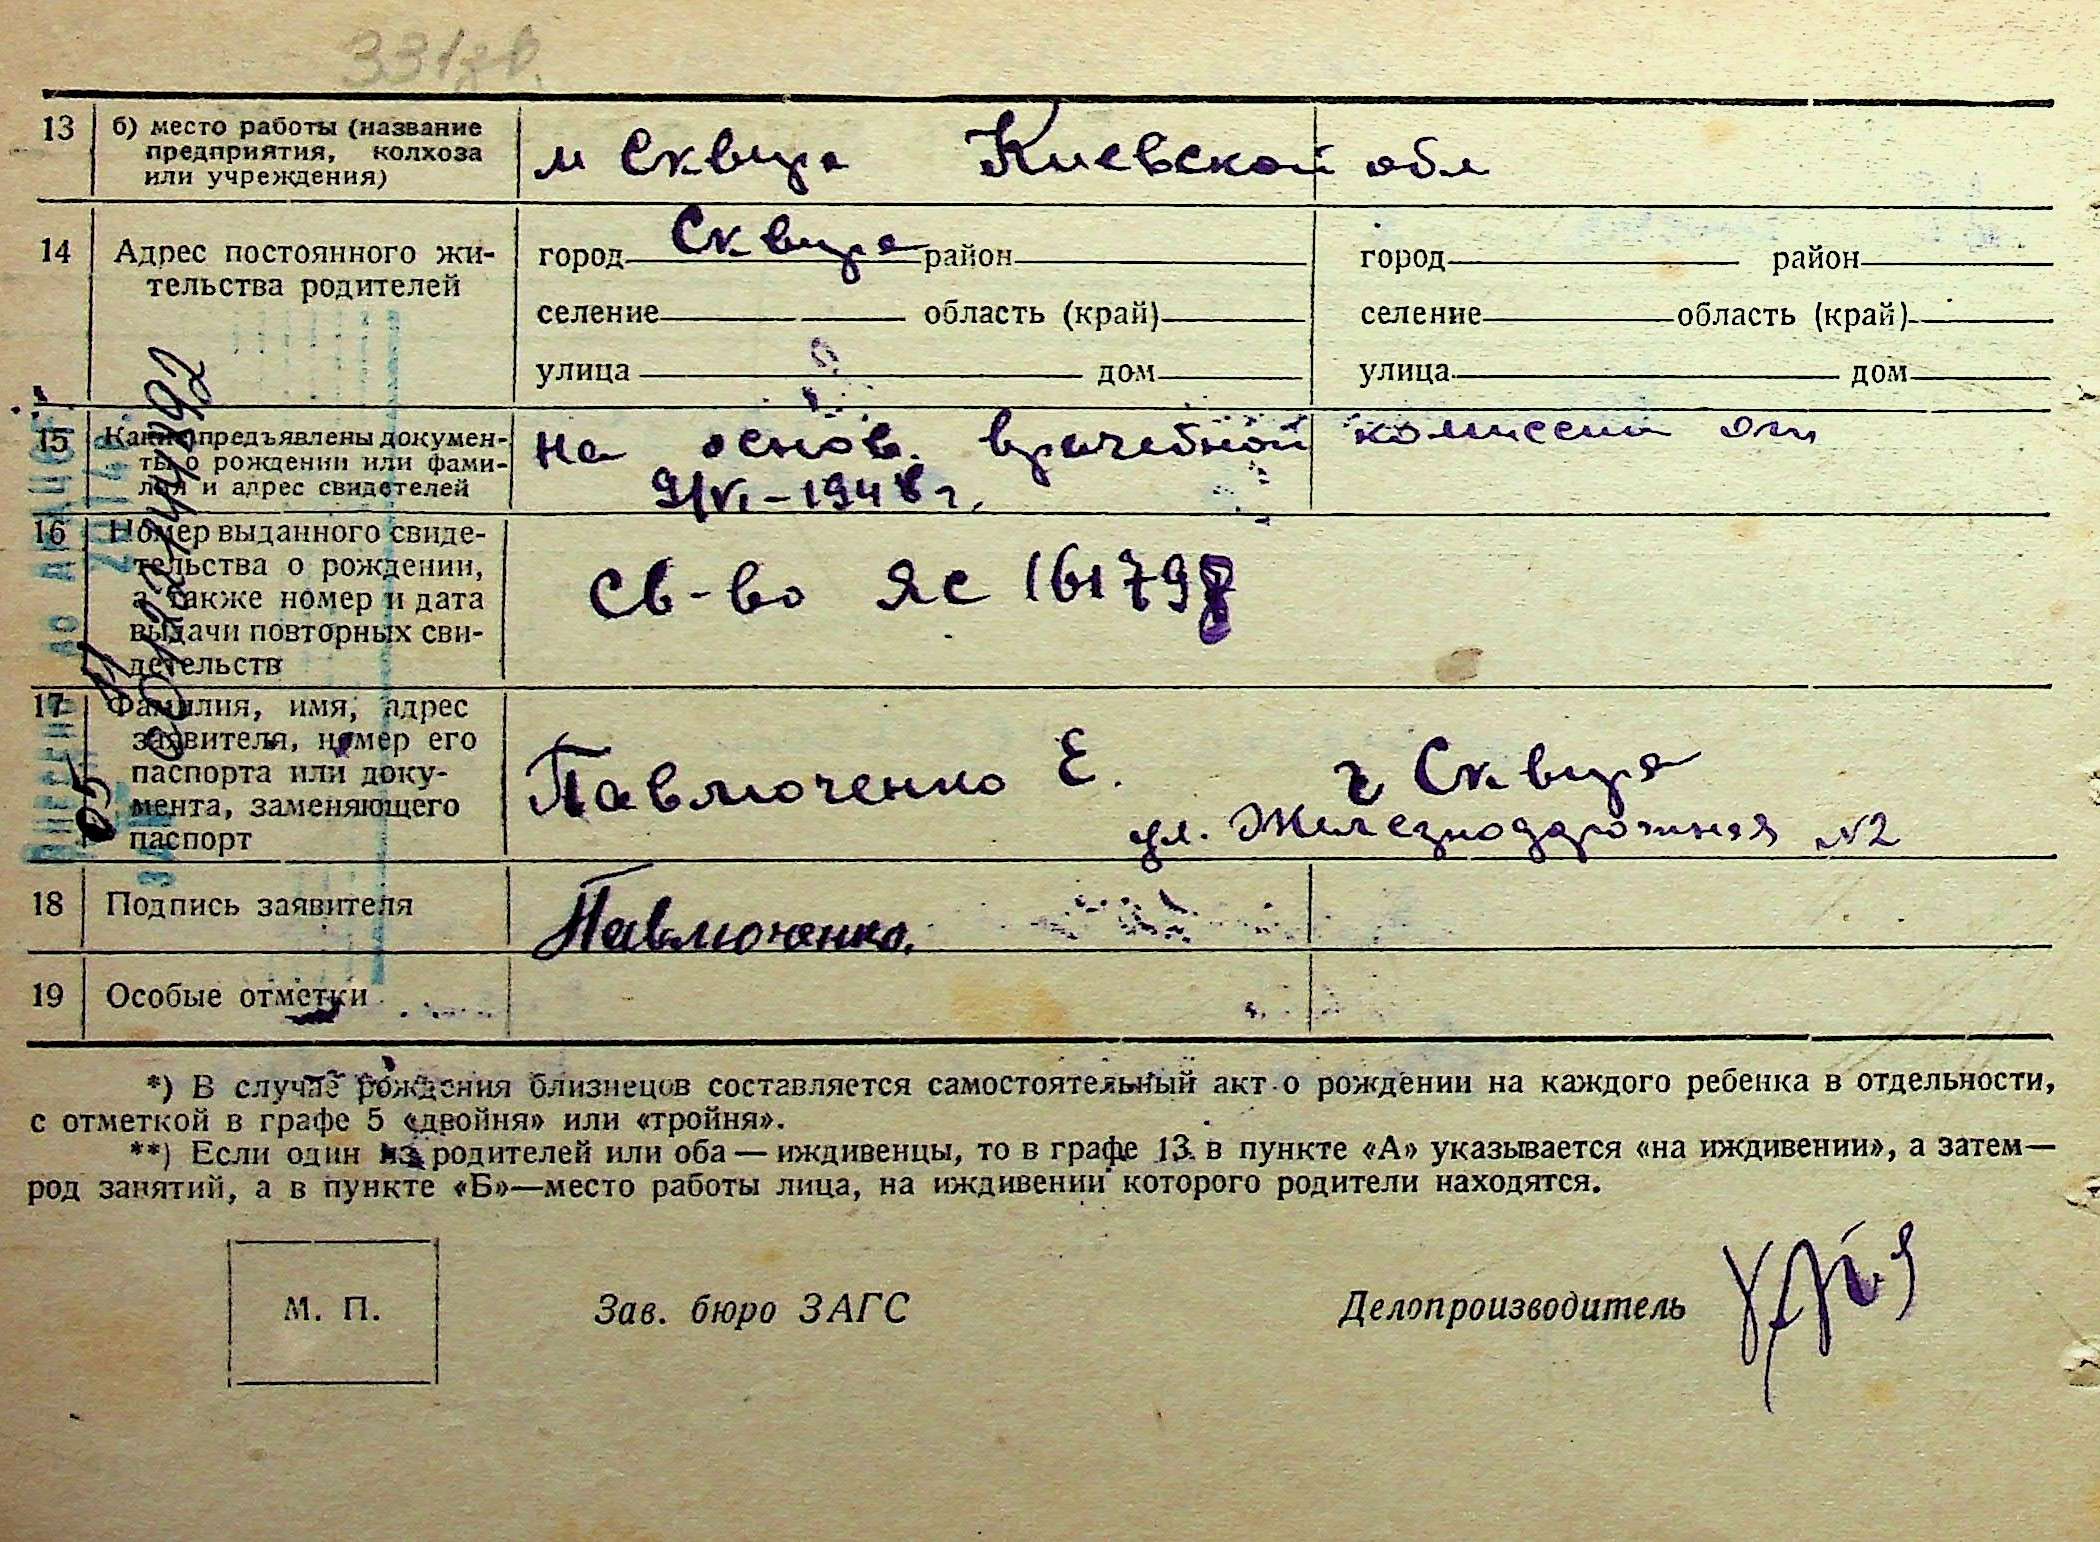 331зв.
13 б) место работы (название
предприятия, колхоза
или учреждения)
м Сквира Киевской обл
14 Адрес постоянного жи-
тельства родителей
город Сквира район город район
селение область (край) селение область (край)
улица дом улица дом
15 Какие предъявлены докумен-
ты о рождении или фами-
лия и адрес свидетелей
на основ. врачебной комиссии от
9/VI-1948 г.
16 Номер выданного свиде-
тельства о рождении,
а также номер и дата
выдачи повторных сви-
детельств
Св-во ЯС 161798
17 Фамилия, имя, адрес
заявителя, номер его
паспорта или доку-
мента, заменяющего
паспорт
Павлюченко Е. г Сквира
ул. Железнодорожная №2
18 Подпись заявителя Павлюченко.
19 Особые отметки
*) В случае рождения близнецов составляется самостоятельный акт о рождении на каждого ребенка в отдельности,
с отметкой в графе 5 «двойня» или «тройня».
**) Если один из родителей или оба — иждивенцы, то в графе 13 в пункте «А» указывается «на иждивении», а затем—
род занятий, а в пункте «Б»—место работы лица, на иждивении которого родители находятся.
М. П. Зав. бюро ЗАГС Делопроизводитель